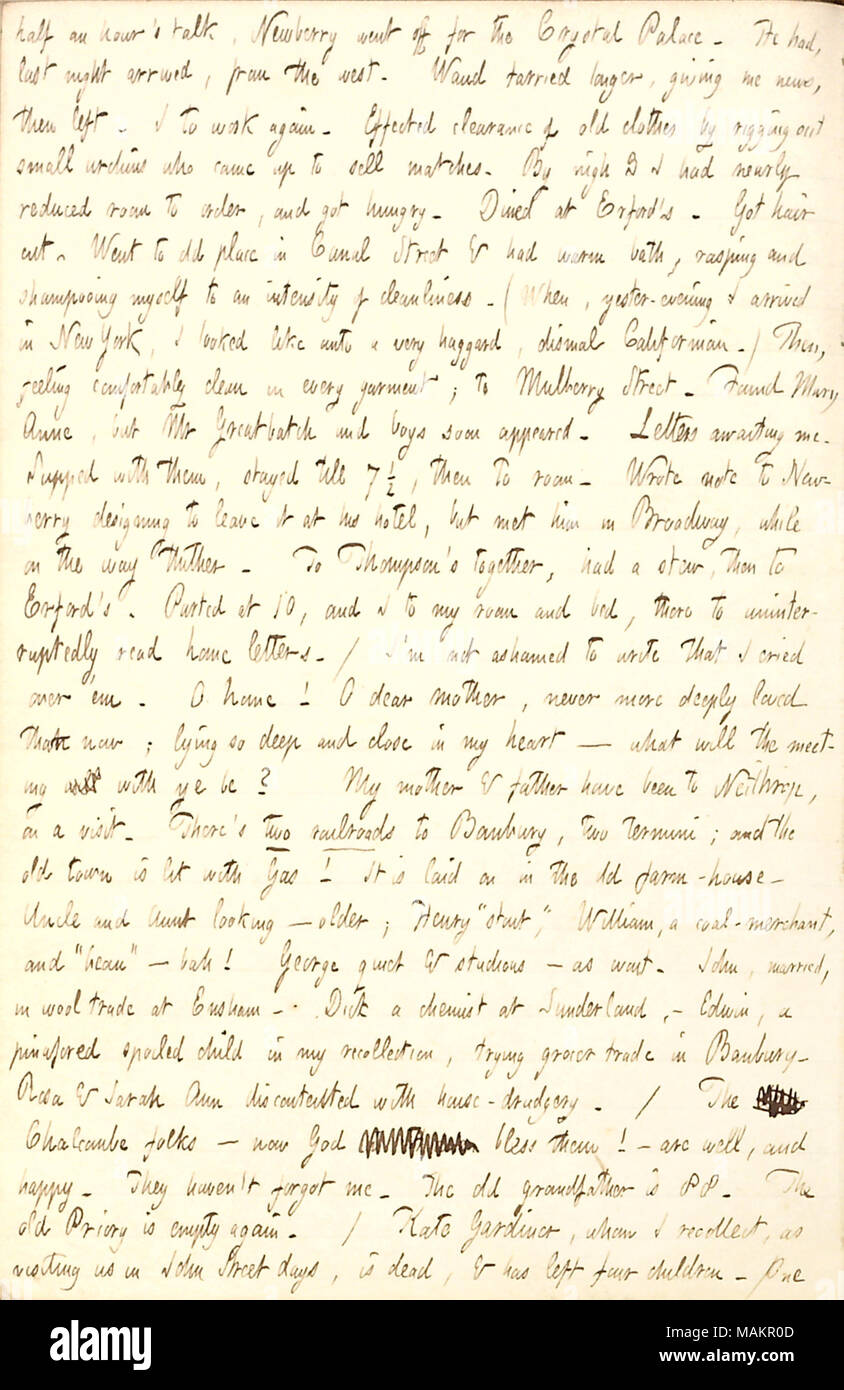 half an hour's talk, Newberry went off for the Crystal Palace. He had,
last night arrived, from the west. Waud tarried longer, giving me news,
then left. I to work again. Effected clearance of old clothes by rigging out
small urchins who came up to sell matches. By nigh 3 I had nearly
reduced room to order, and got hungry. Dined at Erford's. Got hair
cut. Went to old place in Canal Street & had warm bath, rasping and
shampooing myself to an intensity of cleanliness. (When, yester-evening I arrived
in New York, I looked like unto a very haggard, dismal Californian.) Then,
feeling comfortably clean in every garment; to Mulberry Street. Found Mary
Anne, but Mr Greatbatch and boys soon appeared. Letters awaiting me.
Supped with them, stayed till 7 ½, then to room. Wrote note to New-
berry designing to leave it at his hotel, but met him in Broadway, while
on the way thither. To Thompson's together, had a stew, then to
Erford's. Parted at 10, and I to my room and bed, there to uninter-
ruptedly read home letters. / I'm not ashamed to write that I cried
over 'em. O home! O dear mother, never more deeply loved
than now; lying so deep and close in my heart — what will the meet-
ing with ye be? My mother & father have been to Neithrop,
on a visit. There's two railroads to Banbury, two termini; and the
old town is lit with Gas! It is laid on in the old farm-house.
Uncle and Aunt looking — older; Henry "stout," William, a coal-merchant,
and "beau" — bah! George quiet & studious — as wont. John, married,
in wool trade at Ensham. Dick a chemist at Sunderland, — Edwin, a
pinafored spoiled child in my recollection, trying grocer trade in Banbury.
Rosa & Sarah Ann discontented with house-drudgery. / The
Chalcombe folks — now God bless them! — are well, and
happy. They haven't forgot me. The old grandfather is 88. The
old Priory is empty again. / Kate Gardiner, whom I recollect, as
visiting us in John Street days, is dead, & has left four children. One
alamy
Image ID: MAKR0D
www.alamy.com